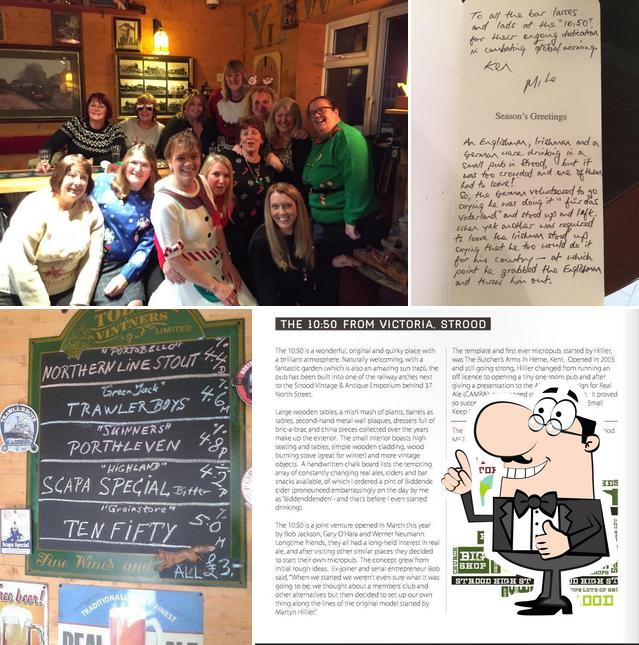 To all the bar lasses
and lads at the "10:50"
for their ongoing dedication
in combating global warming.
Ken
Milo
Season's Greetings
An Englishman, Irishman and a
German were drinking in a
small pub in Strood, but it
was too crowded and one of them
had to leave!
So, the German volunteered to go
saying he was doing it "für das
Vaterland" and stood up and left.
When yet another was required
to leave the Irishman stood up
saying that he too would do it
for his country — at which
point he grabbed the Englishman
and threw him out.
VINTNERS
LIMITED
"PORTOBELLO"
NORTHERN LINE STOUT 4.4 D
"Green Jack"
TRAWLER BOYS 4.6 M
"SKINNERS"
PORTHLEVEN 4.8 P
"HIGHLAND"
SCAPA SPECIAL Bitter
"Grainstore"
TEN FIFTY 5.0 M
Fine Wines and
ALL £3.-
Scapa Special
free beer!
TRADITIONAL
FINEST
REAL ALE
THE 10:50 FROM VICTORIA, STROOD
The 10:50 is a wonderful, original and quirky place with
a brilliant atmosphere. Naturally welcoming, with a
fantastic garden (which is also an amazing sun trap), the
pub has been built into one of the railway arches next
to the Strood Vintage & Antique Emporium behind 37
North Street.
Large wooden tables, a mish mash of plants, barrels as
tables, second-hand metal wall plaques, dressers full of
bric-a-brac and china pieces collected over the years
make up the exterior. The small interior boasts high
seating and tables, simple wooden cladding, wood
burning stove (great for winter) and more vintage
objects. A handwritten chalk board lists the tempting
array of constantly changing real ales, ciders and bar
snacks available, of which I ordered a pint of Biddende
cider (pronounced embarrassingly on the day by me
as 'Biddenddenden' - and that's before I even started
drinking).
The 10:50 is a joint venture opened in March this year
by Bob Jackson, Gary O'Hara and Werner Neumann.
Longtime friends, they all had a long-held interest in real
ale, and after visiting other similar places they decided
to start their own micropub. The concept grew from
initial rough ideas. Ex-joiner and serial entrepreneur Bob
said, "When we started we weren't even sure what it was
going to be; we thought about a members club and
other alternatives but then decided to set up our own
thing along the lines of the original model started by
Martyn Hillier."
The template and first ever micropub, started by Hillier,
was The Butcher's Arms in Herne, Kent. Opened in 2005
and still going strong, Hillier changed from running an
off licence to opening a tiny one room pub and after
giving a presentation to the
for Real
Ale (CAMRA)
It proved
Small
Keep
The
BIG
SHOP
STROOD HIGH ST
HIGH ST
LOTS OF